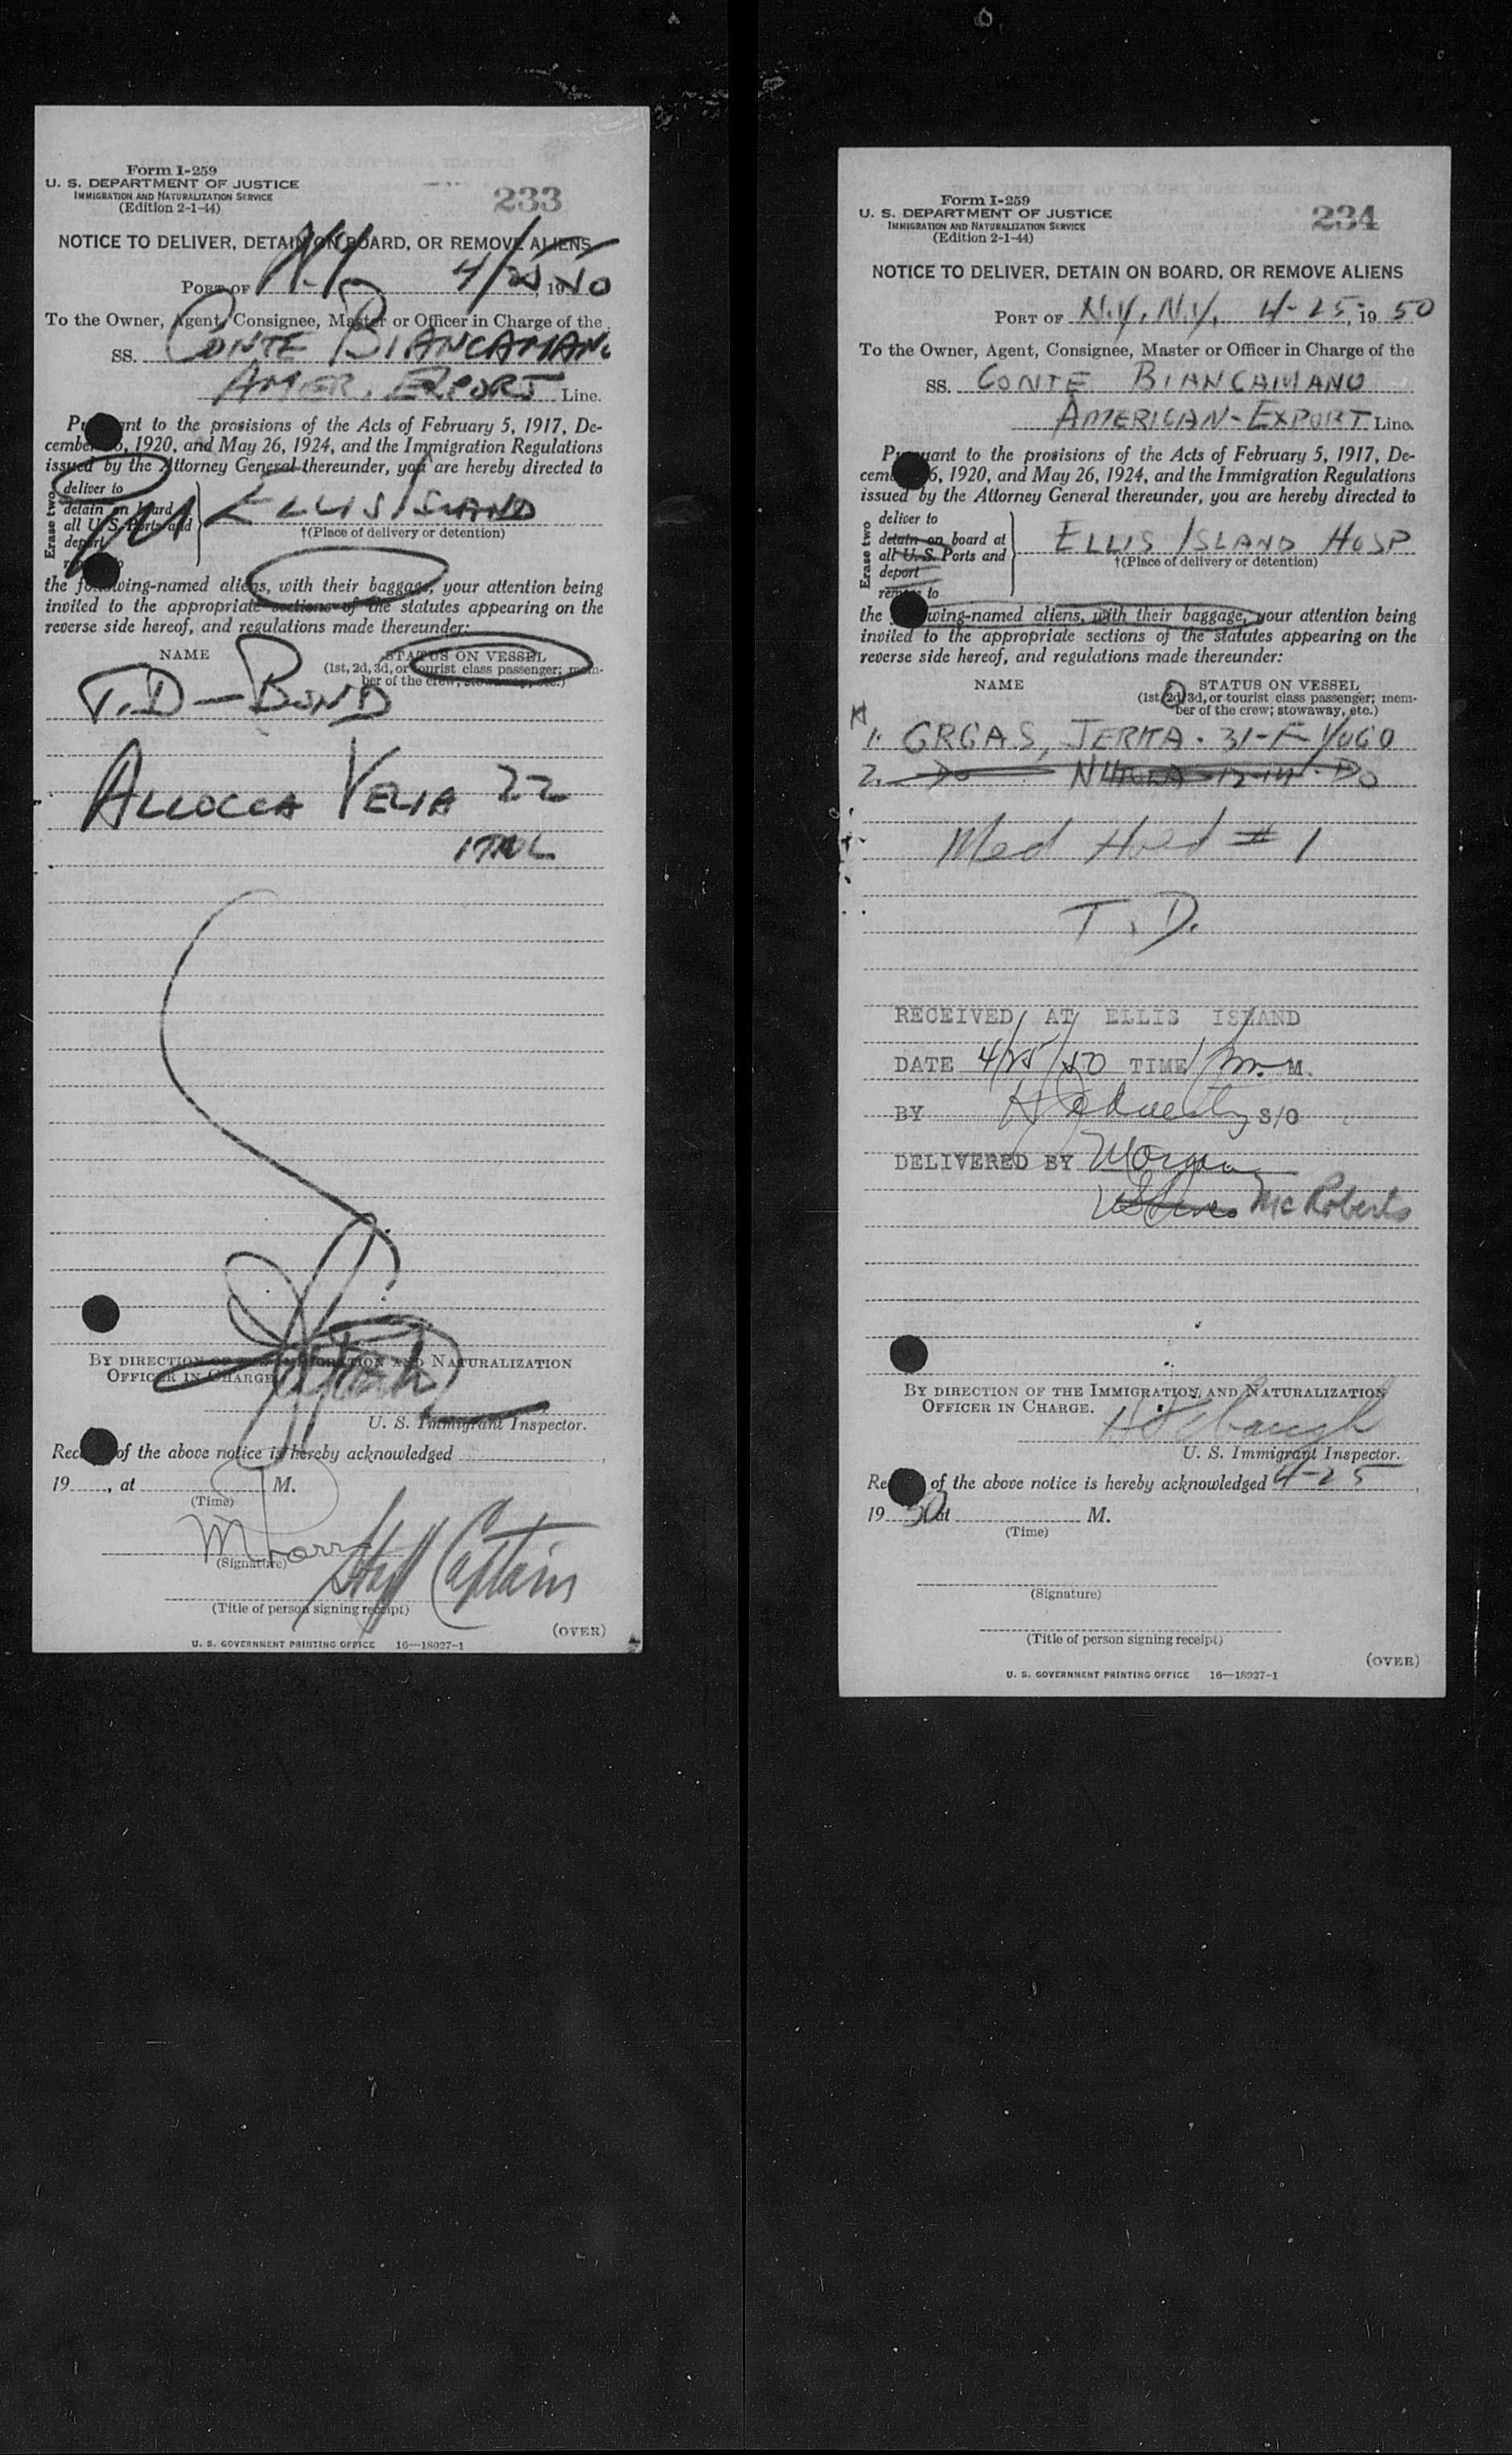 Form I-259
U. S. DEPARTMENT OF JUSTICE
IMMIGRATION AND NATURALIZATION SERVICE
(Edition 2-1-44)
233
NOTICE TO DELIVER, DETAIN ON BOARD, OR REMOVE ALIENS
PORT OF N.Y. 4/25, 1950
To the Owner, Agent, Consignee, Master or Officer in Charge of the
SS. CONTE BIANCAMAN.
AMER. EXPORT Line.
Pursuant to the provisions of the Acts of February 5, 1917, De-
cember 26, 1920, and May 26, 1924, and the Immigration Regulations
issued by the Attorney General thereunder, you are hereby directed to
Erase two
deliver to
detain on board
all U. S. Ports and
deport
ELLIS ISLAND
†(Place of delivery or detention)
the following-named aliens, with their baggage, your attention being
invited to the appropriate sections of the statutes appearing on the
reverse side hereof, and regulations made thereunder:
NAME STATUS ON VESSEL
(1st, 2d, 3d, or tourist class passenger; mem-
ber of the crew; stowaway, etc.)
T.D - BOND
ALLOCCA VELIA 22
ITAL
BY DIRECTION OF THE IMMIGRATION AND NATURALIZATION
OFFICER IN CHARGE
U. S. Immigrant Inspector.
Receipt of the above notice is hereby acknowledged
19....., at M.
(Time)
(Signature)
Staff Captain
(Title of person signing receipt)
(OVER)
U. S. GOVERNMENT PRINTING OFFICE 16—18027-1
Form I-259
U. S. DEPARTMENT OF JUSTICE
IMMIGRATION AND NATURALIZATION SERVICE
(Edition 2-1-44)
234
NOTICE TO DELIVER, DETAIN ON BOARD, OR REMOVE ALIENS
PORT OF N.Y. N.Y. 4-25, 1950
To the Owner, Agent, Consignee, Master or Officer in Charge of the
SS. CONTE BIANCAMANO
AMERICAN-EXPORT Line.
Pursuant to the provisions of the Acts of February 5, 1917, De-
cember 26, 1920, and May 26, 1924, and the Immigration Regulations
issued by the Attorney General thereunder, you are hereby directed to
Erase two
deliver to
detain on board at
all U. S. Ports and
deport
remove to
ELLIS ISLAND HOSP
†(Place of delivery or detention)
the following-named aliens, with their baggage, your attention being
invited to the appropriate sections of the statutes appearing on the
reverse side hereof, and regulations made thereunder:
NAME STATUS ON VESSEL
(1st, 2d, 3d, or tourist class passenger; mem-
ber of the crew; stowaway, etc.)
1. GRGAS, JERKA. 31-F YUGO
2. Do Do
Med Hold # 1
T. D.
RECEIVED AT ELLIS ISLAND
DATE 4/25/50 TIME M.
BY S/O
DELIVERED BY Morgan
McRoberts
BY DIRECTION OF THE IMMIGRATION AND NATURALIZATION
OFFICER IN CHARGE.
U. S. Immigrant Inspector.
Receipt of the above notice is hereby acknowledged 4-25,
19 50 at M.
(Time)
(Signature)
(Title of person signing receipt)
(OVER)
U. S. GOVERNMENT PRINTING OFFICE 16—18027-1